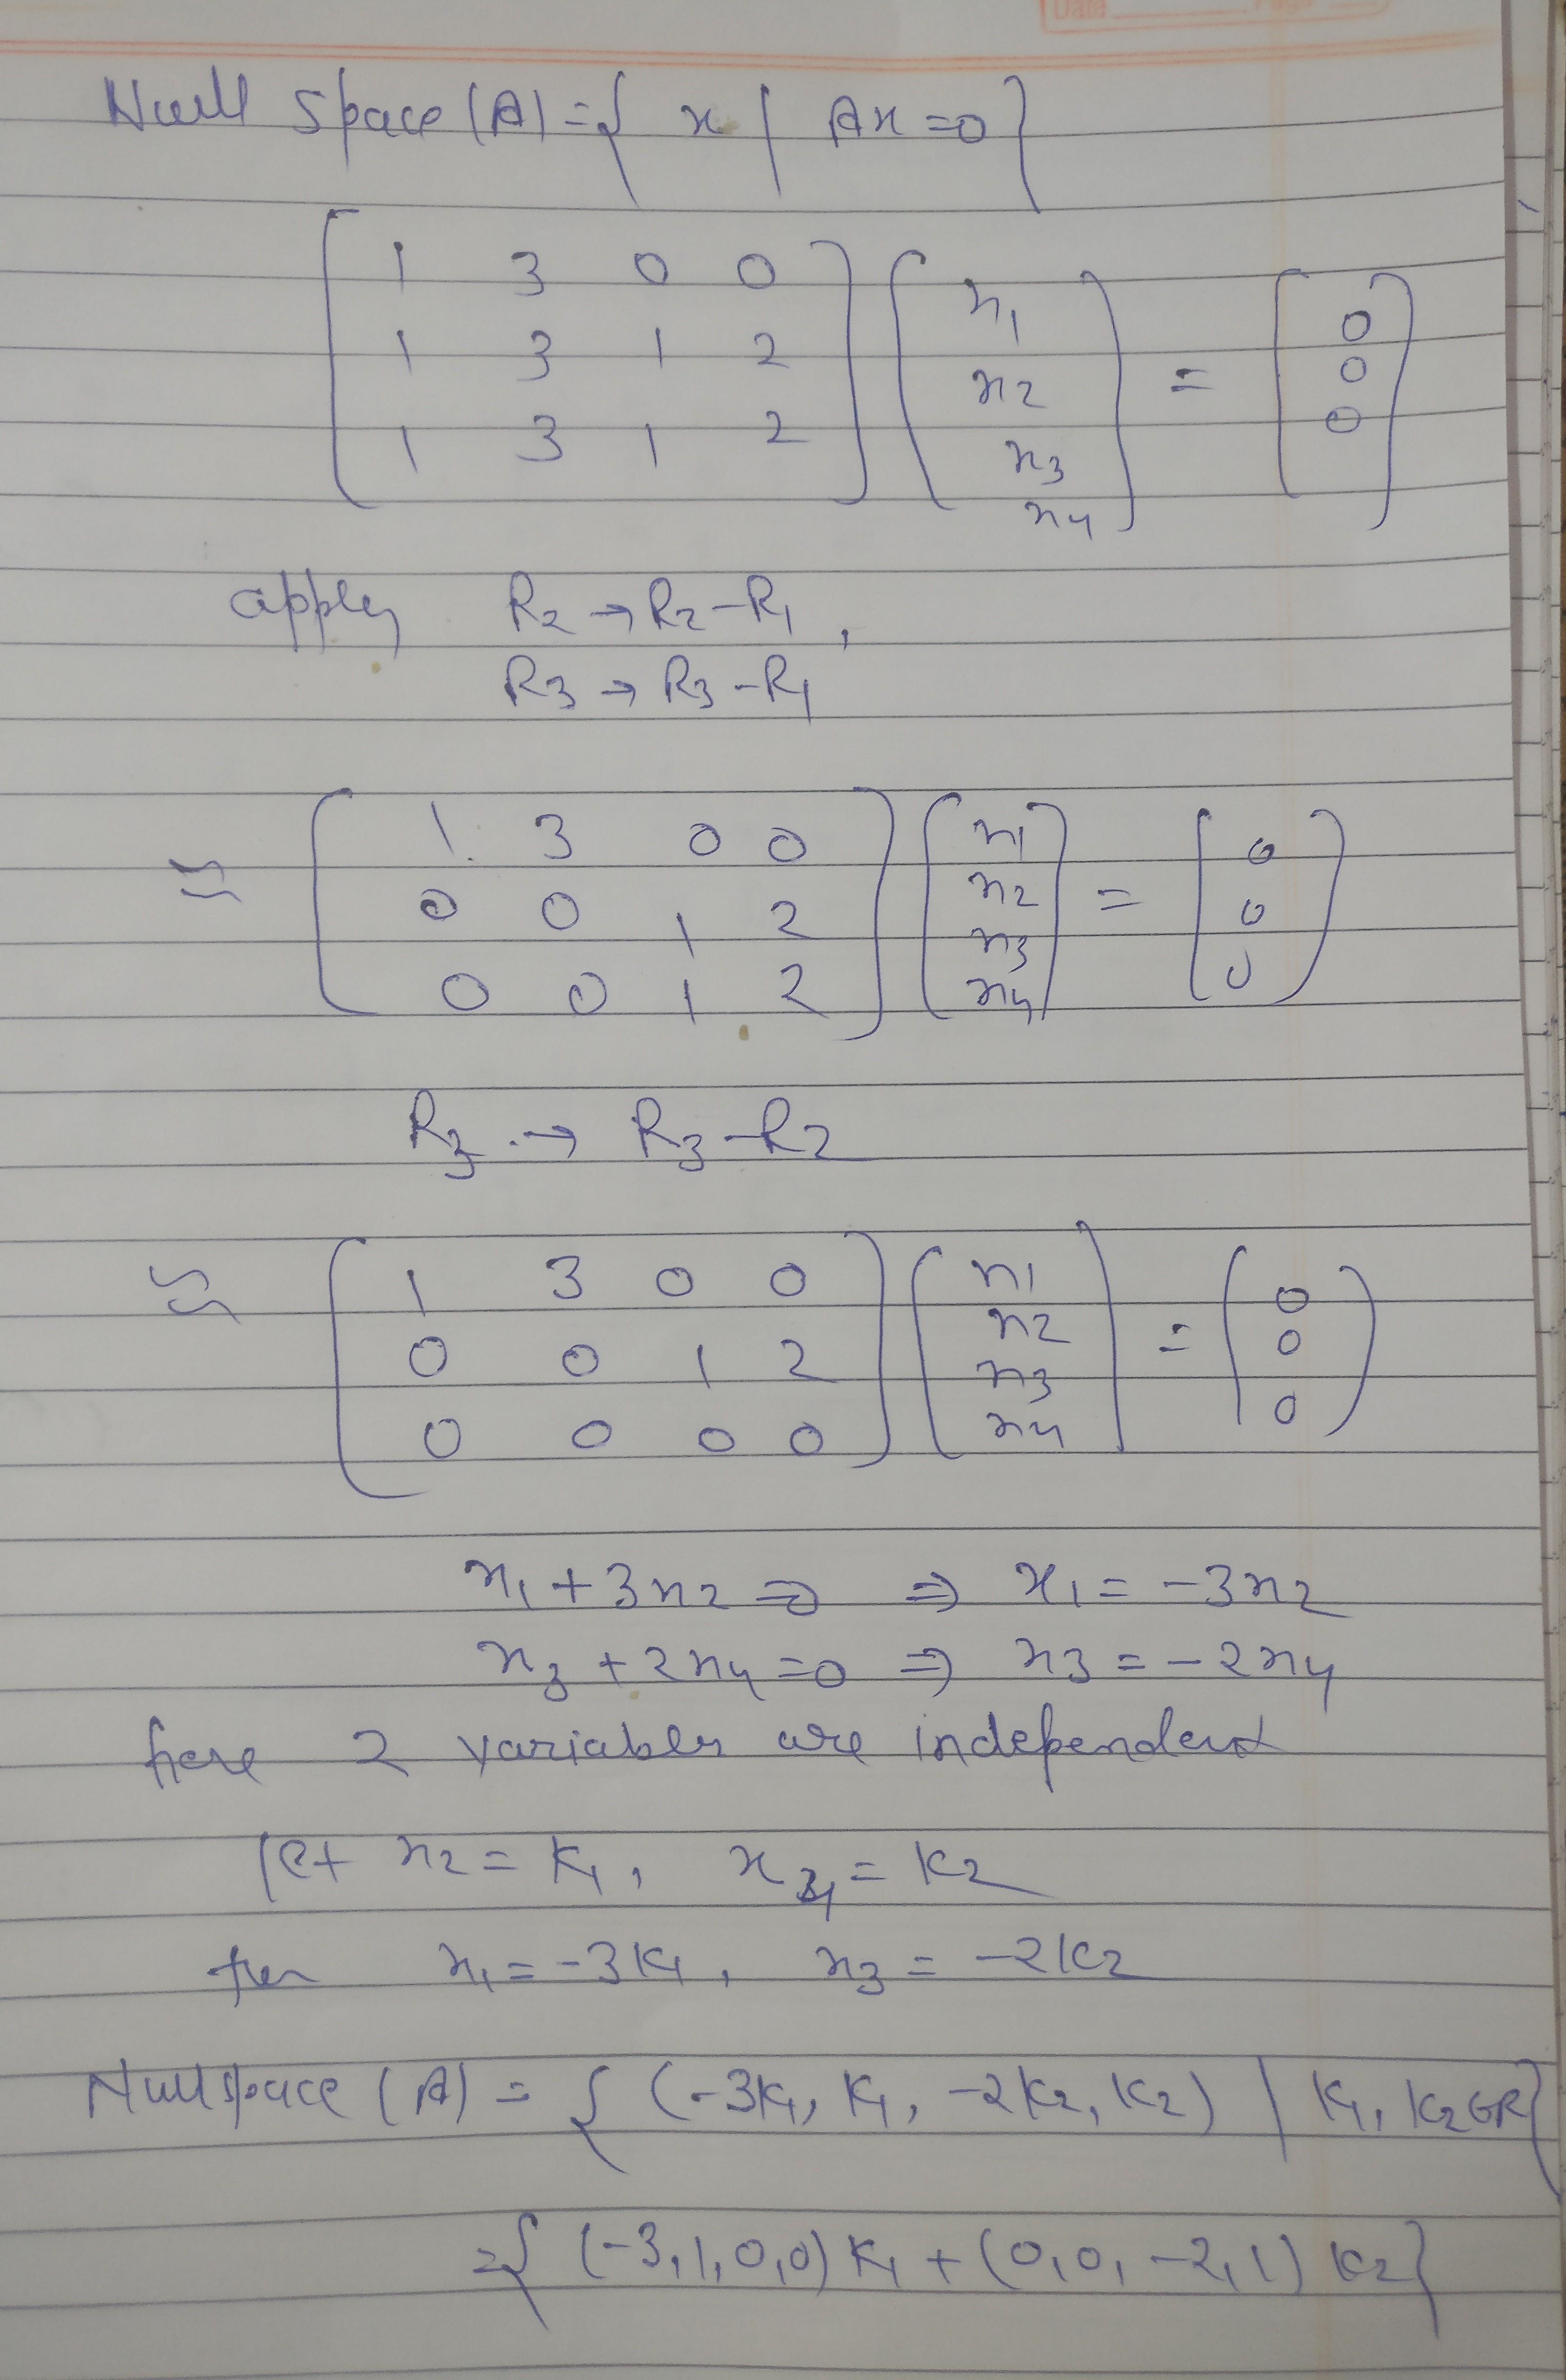 Date Page
Null space (A) = { x | Ax = 0 }
[ 1 3 0 0 ] [ x1 ] = [ 0 ]
[ 1 3 1 2 ] [ x2 ] [ 0 ]
[ 1 3 1 2 ] [ x3 ] [ 0 ]
[ x4 ]
apply R2 → R2 - R1 ,
R3 → R3 - R1
≈ [ 1 3 0 0 ] [ x1 ] = [ 0 ]
[ 0 0 1 2 ] [ x2 ] [ 0 ]
[ 0 0 1 2 ] [ x3 ] [ 0 ]
[ x4 ]
R3 → R3 - R2
≈ [ 1 3 0 0 ] [ x1 ] = [ 0 ]
[ 0 0 1 2 ] [ x2 ] [ 0 ]
[ 0 0 0 0 ] [ x3 ] [ 0 ]
[ x4 ]
x1 + 3x2 = 0 ⇒ x1 = -3x2
x3 + 2x4 = 0 ⇒ x3 = -2x4
here 2 variables are independent
let x2 = K1, x4 = K2
then x1 = -3K1, x3 = -2K2
Nullspace (A) = { (-3K1, K1, -2K2, K2) | K1, K2 ∈ R }
= { (-3,1,0,0) K1 + (0,0,-2,1) K2 }